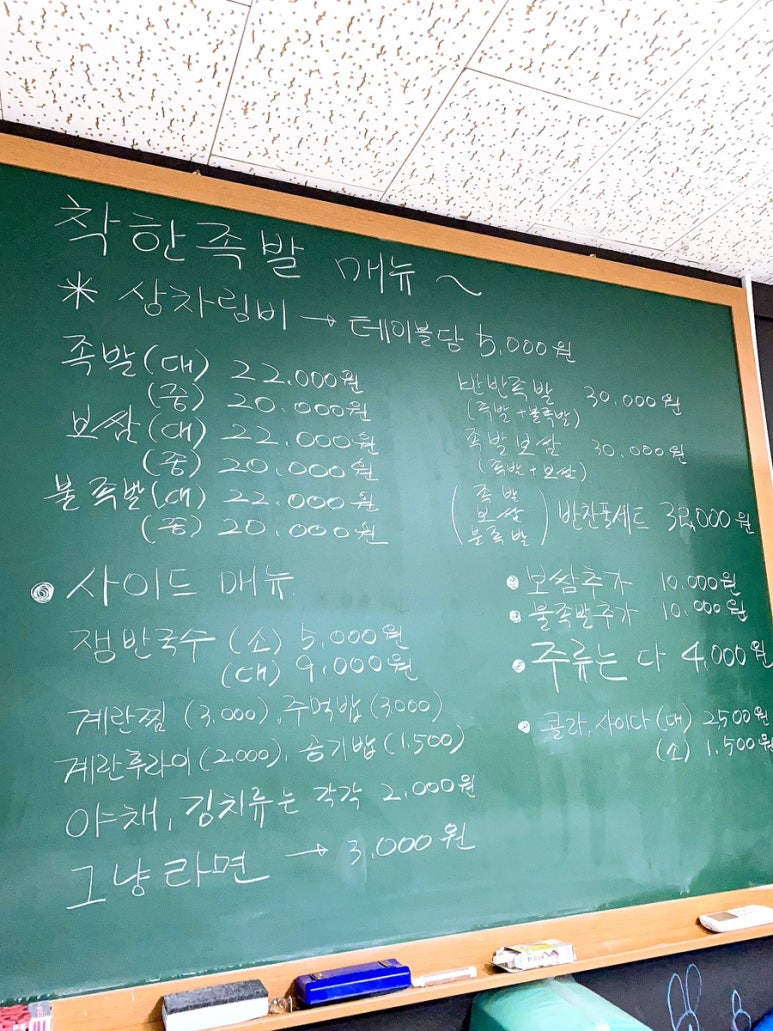 착한족발 메뉴~
* 상차림비 → 테이블당 5,000원
족발(대) 22.000원
(중) 20.000원
보쌈(대) 22.000원
(중) 20.000원
불족발(대) 22.000원
(중) 20.000원
반반족발 30.000원
(족발+불족발)
족발보쌈 30.000원
(족발+보쌈)
(족발
보쌈
불족발) 반찬풀세트 38,000원
• 사이드 메뉴
쟁반국수 (소) 5,000원
(대) 9,000원
계란찜 (3,000), 주먹밥 (3000)
계란후라이 (2,000), 공기밥 (1,500)
야채, 김치류는 각각 2,000원
그냥라면 → 3,000원
• 보쌈추가 10.000원
• 불족발추가 10.000원
• 주류는 다 4,000원
• 콜라, 사이다 (대) 2500원
(소) 1.500원